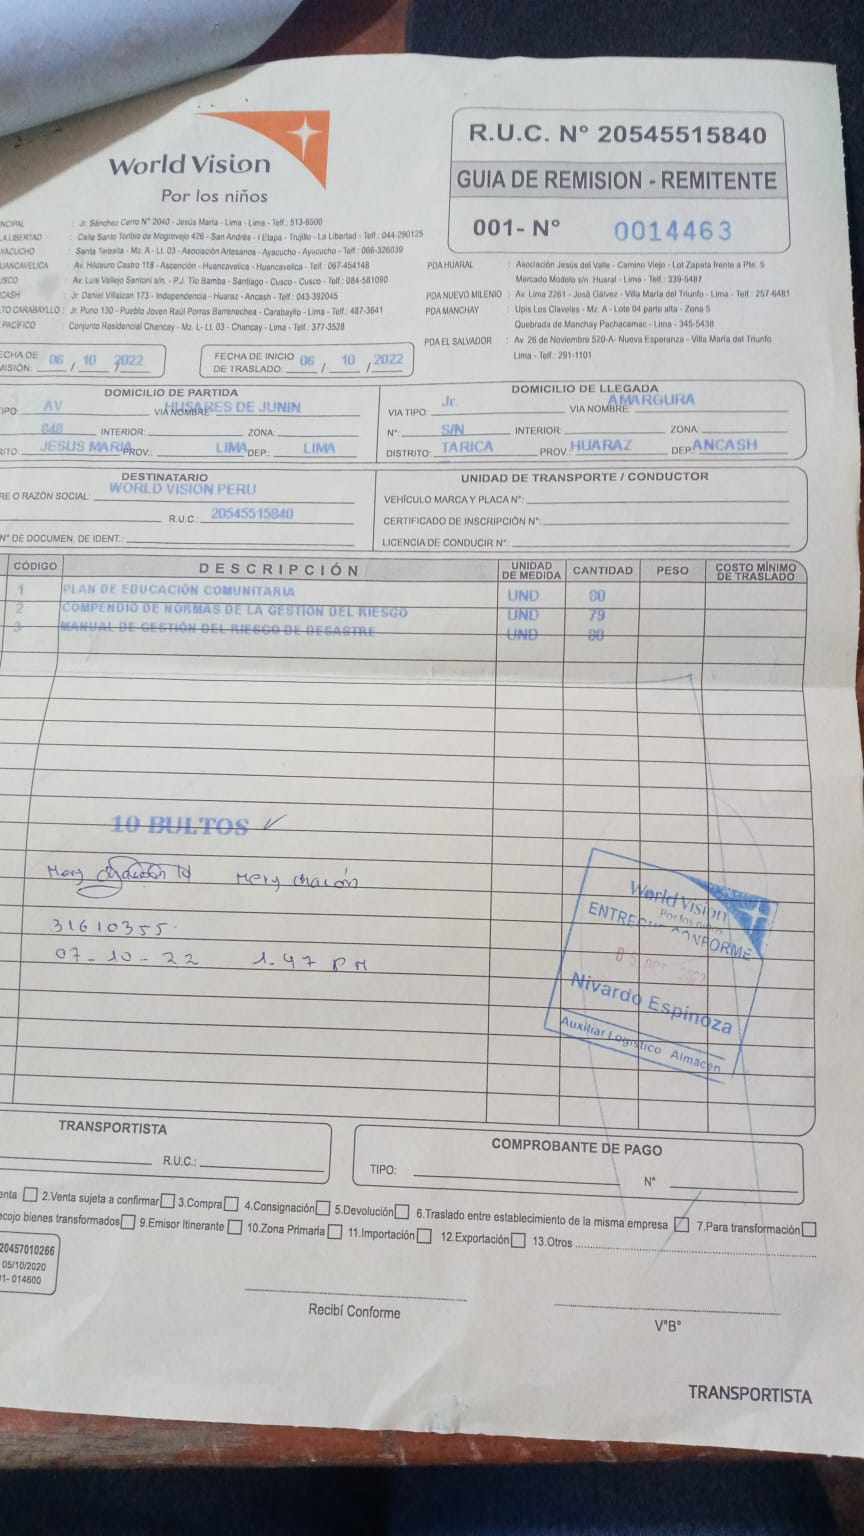 World Vision
Por los niños
R.U.C. N° 20545515840
GUIA DE REMISION - REMITENTE
001- N° 0014463
NCIPAL : Jr. Sánchez Cerro N° 2040 - Jesús María - Lima - Lima - Telf.: 513-6500
LA LIBERTAD : Calle Santo Toribio de Mogrovejo 426 - San Andrés - I Etapa - Trujillo - La Libertad - Telf.: 044-290125
YACUCHO : Santa Teresita - Mz. A - Lt. 03 - Asociación Artesanos - Ayacucho - Ayacucho - Telf.: 066-326039
UANCAVELICA : Av. Hildauro Castro 118 - Ascención - Huancavelica - Huancavelica - Telf.: 067-454148
USCO : Av. Luis Vallejo Santoni s/n. - P.J. Tío Bamba - Santiago - Cusco - Cusco - Telf.: 084-581090
CASH : Jr. Daniel Villaizan 173 - Independencia - Huaraz - Ancash - Telf.: 043-392045
TO CARABAYLLO : Jr. Puno 130 - Pueblo Joven Raúl Porras Barrenechea - Carabayllo - Lima - Telf.: 487-3641
PACÍFICO : Conjunto Residencial Chancay - Mz. L - Lt. 03 - Chancay - Lima - Telf.: 377-3528
PDA HUARAL : Asociación Jesús del Valle - Camino Viejo - Lot Zapata frente a Pte. 5
Mercado Modelo s/n. Huaral - Lima - Telf.: 339-5487
PDA NUEVO MILENIO : Av. Lima 2261 - José Gálvez - Villa María del Triunfo - Lima - Telf.: 257-6481
PDA MANCHAY : Upis Los Claveles - Mz. A - Lote 04 parte alta - Zona 5
Quebrada de Manchay Pachacamac - Lima - 345-5438
PDA EL SALVADOR : Av. 26 de Noviembre 520-A- Nueva Esperanza - Villa María del Triunfo
Lima - Telf.: 291-1101
ECHA DE
MISIÓN: 06 / 10 / 2022
FECHA DE INICIO
DE TRASLADO: 06 / 10 / 2022
DOMICILIO DE PARTIDA
IPO AV VIA NOMBRE: HUSARES DE JUNIN
848 INTERIOR: ZONA:
RITO: JESUS MARIA PROV.: LIMA DEP.: LIMA
DOMICILIO DE LLEGADA
VIA TIPO: Jr. VIA NOMBRE: AMARGURA
N°: S/N INTERIOR: ZONA:
DISTRITO: TARICA PROV. HUARAZ DEP. ANCASH
DESTINATARIO
RE O RAZÓN SOCIAL: WORLD VISION PERU
R.U.C.: 20545515840
N° DE DOCUMEN. DE IDENT.:
UNIDAD DE TRANSPORTE / CONDUCTOR
VEHÍCULO MARCA Y PLACA N°:
CERTIFICADO DE INSCRIPCIÓN N°:
LICENCIA DE CONDUCIR N°:
CÓDIGO DESCRIPCIÓN UNIDAD DE MEDIDA CANTIDAD PESO COSTO MÍNIMO DE TRASLADO
1 PLAN DE EDUCACIÓN COMUNITARIA UND 80
2 COMPENDIO DE NORMAS DE LA GESTION DEL RIESGO UND 79
3 MANUAL DE GESTIÓN DEL RIESGO DE DESASTRE UND 80
10 BULTOS
Mery chacón
31610355
07-10-22 1.47 PM
World Vision
Por los niños
ENTREGUE CONFORME
Nivardo Espinoza
Auxiliar Logístico Almacén
TRANSPORTISTA
R.U.C.:
COMPROBANTE DE PAGO
TIPO: N°
enta 2.Venta sujeta a confirmar 3.Compra 4.Consignación 5.Devolución 6.Traslado entre establecimiento de la misma empresa 7.Para transformación
ecojo bienes transformados 9.Emisor Itinerante 10.Zona Primaria 11.Importación 12.Exportación 13.Otros
20457010266
05/10/2020
1- 014600
Recibí Conforme
V°B°
TRANSPORTISTA